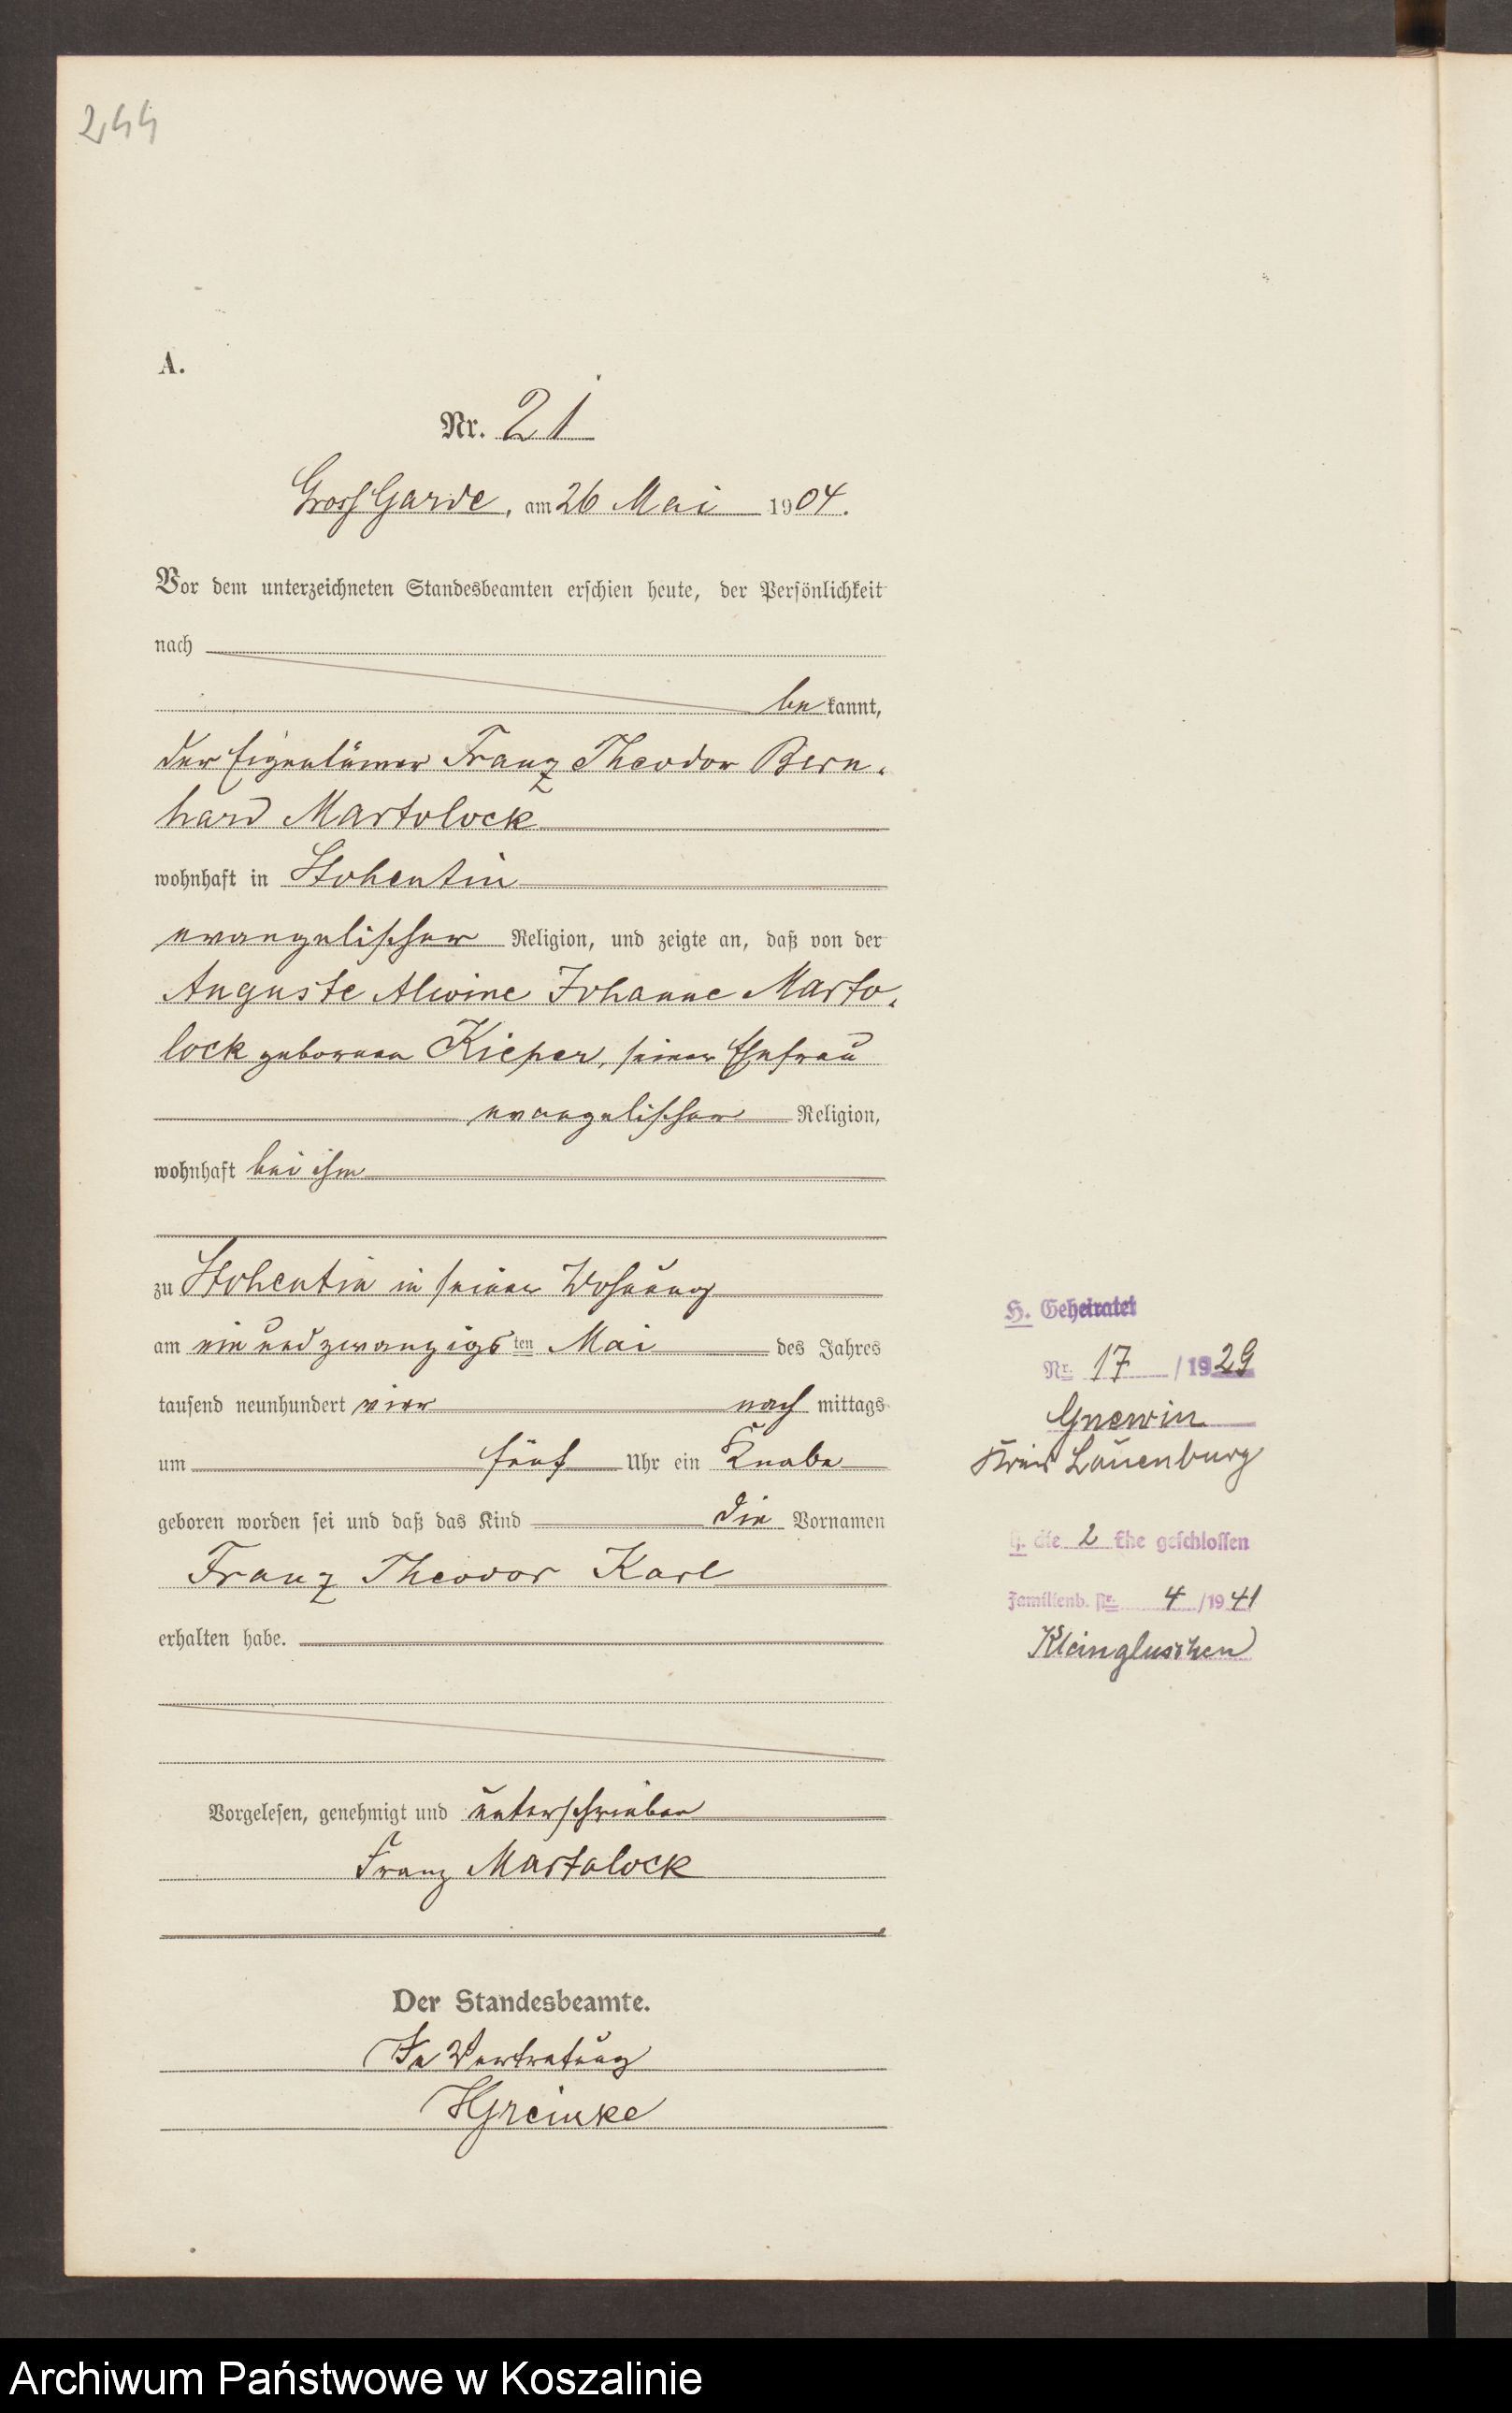 244
A.
Nr. 21
Gross Garde, am 26 Mai 1904.
Vor dem unterzeichneten Standesbeamten erschien heute, der Persönlichkeit
nach
bekannt,
der Eigentümer Franz Theodor Bern-
hard Martolock
wohnhaft in Stohentin
evangelischer Religion, und zeigte an, daß von der
Auguste Alwine Johanne Marto-
lock geborenen Kieper, seiner Ehefrau
evangelischer Religion,
wohnhaft bei ihm
zu Stohentin in seiner Wohnung
am ein und zwanzigsten Mai des Jahres
tausend neunhundert vier nach mittags
um fünf Uhr ein Knabe
geboren worden sei und daß das Kind die Vornamen
Franz Theodor Karl
erhalten habe.
Vorgelesen, genehmigt und unterschrieben
Franz Martolock
Der Standesbeamte.
In Vertretung
HGreinke
H. Geheiratet
Nr. 17 / 1929
Gnewin
Kreis Lauenburg
H. die 2 Ehe geschlossen
Familienb. Nr. 4 / 1941
Kleingluschen
Archiwum Państwowe w Koszalinie